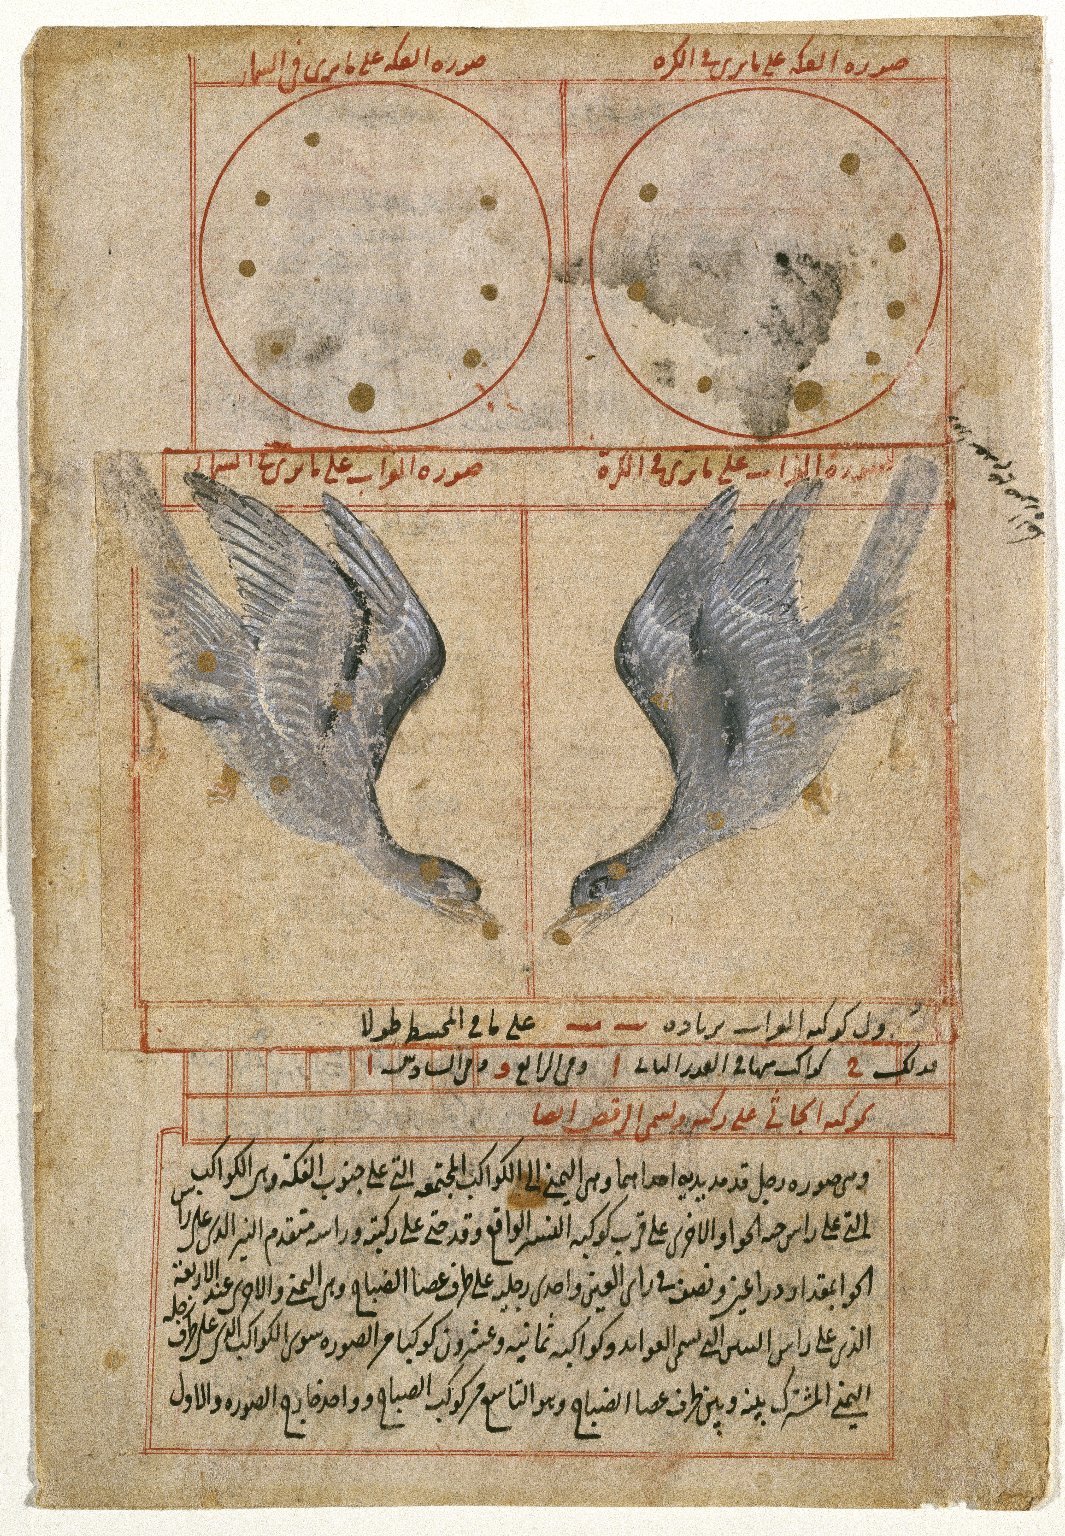 صورة الفكة على ما ترى فى الكرة
صورة الفكة على ما ترى فى السماء
صورة الغراب على ما ترى فى الكرة
صورة الغراب على ما ترى فى السماء
كوكبة الغراب بزيادة على ما فى المجسطى طولا
فذلك كواكب منها فى القدر الثالث ا وفى الرابع و وفى السادس ا
كوكبة الجاثى على ركبتيه ويسمى الرقص ايضا
وهى صورة رجل قد مد يديه احداهما وهى اليمنى الى الكواكب المجتمعة التى على جنوب الفكة وهى الكواكب
التى على راس حية الحوا والاخرى على قرب كوكبة النسر الواقع وقد جثى على ركبتيه وراسه متقدم النير الذى على راس
الحوا بمقدار ذراعين ونصف فى راى العين واحدى رجليه على طرف عصا الضباح وهى اليمنى والاخرى عند الاربعة
الذى على راس التنين التى تسمى العوايد وكواكبه ثمانية وعشرون كوكبا من الصورة سوى الكواكب الذى على طرف رجله
اليمنى المشترك بينه وبين طرف عصا الضباح وهو التاسع من كوكب الصباح وواحد خارج الصورة والاول